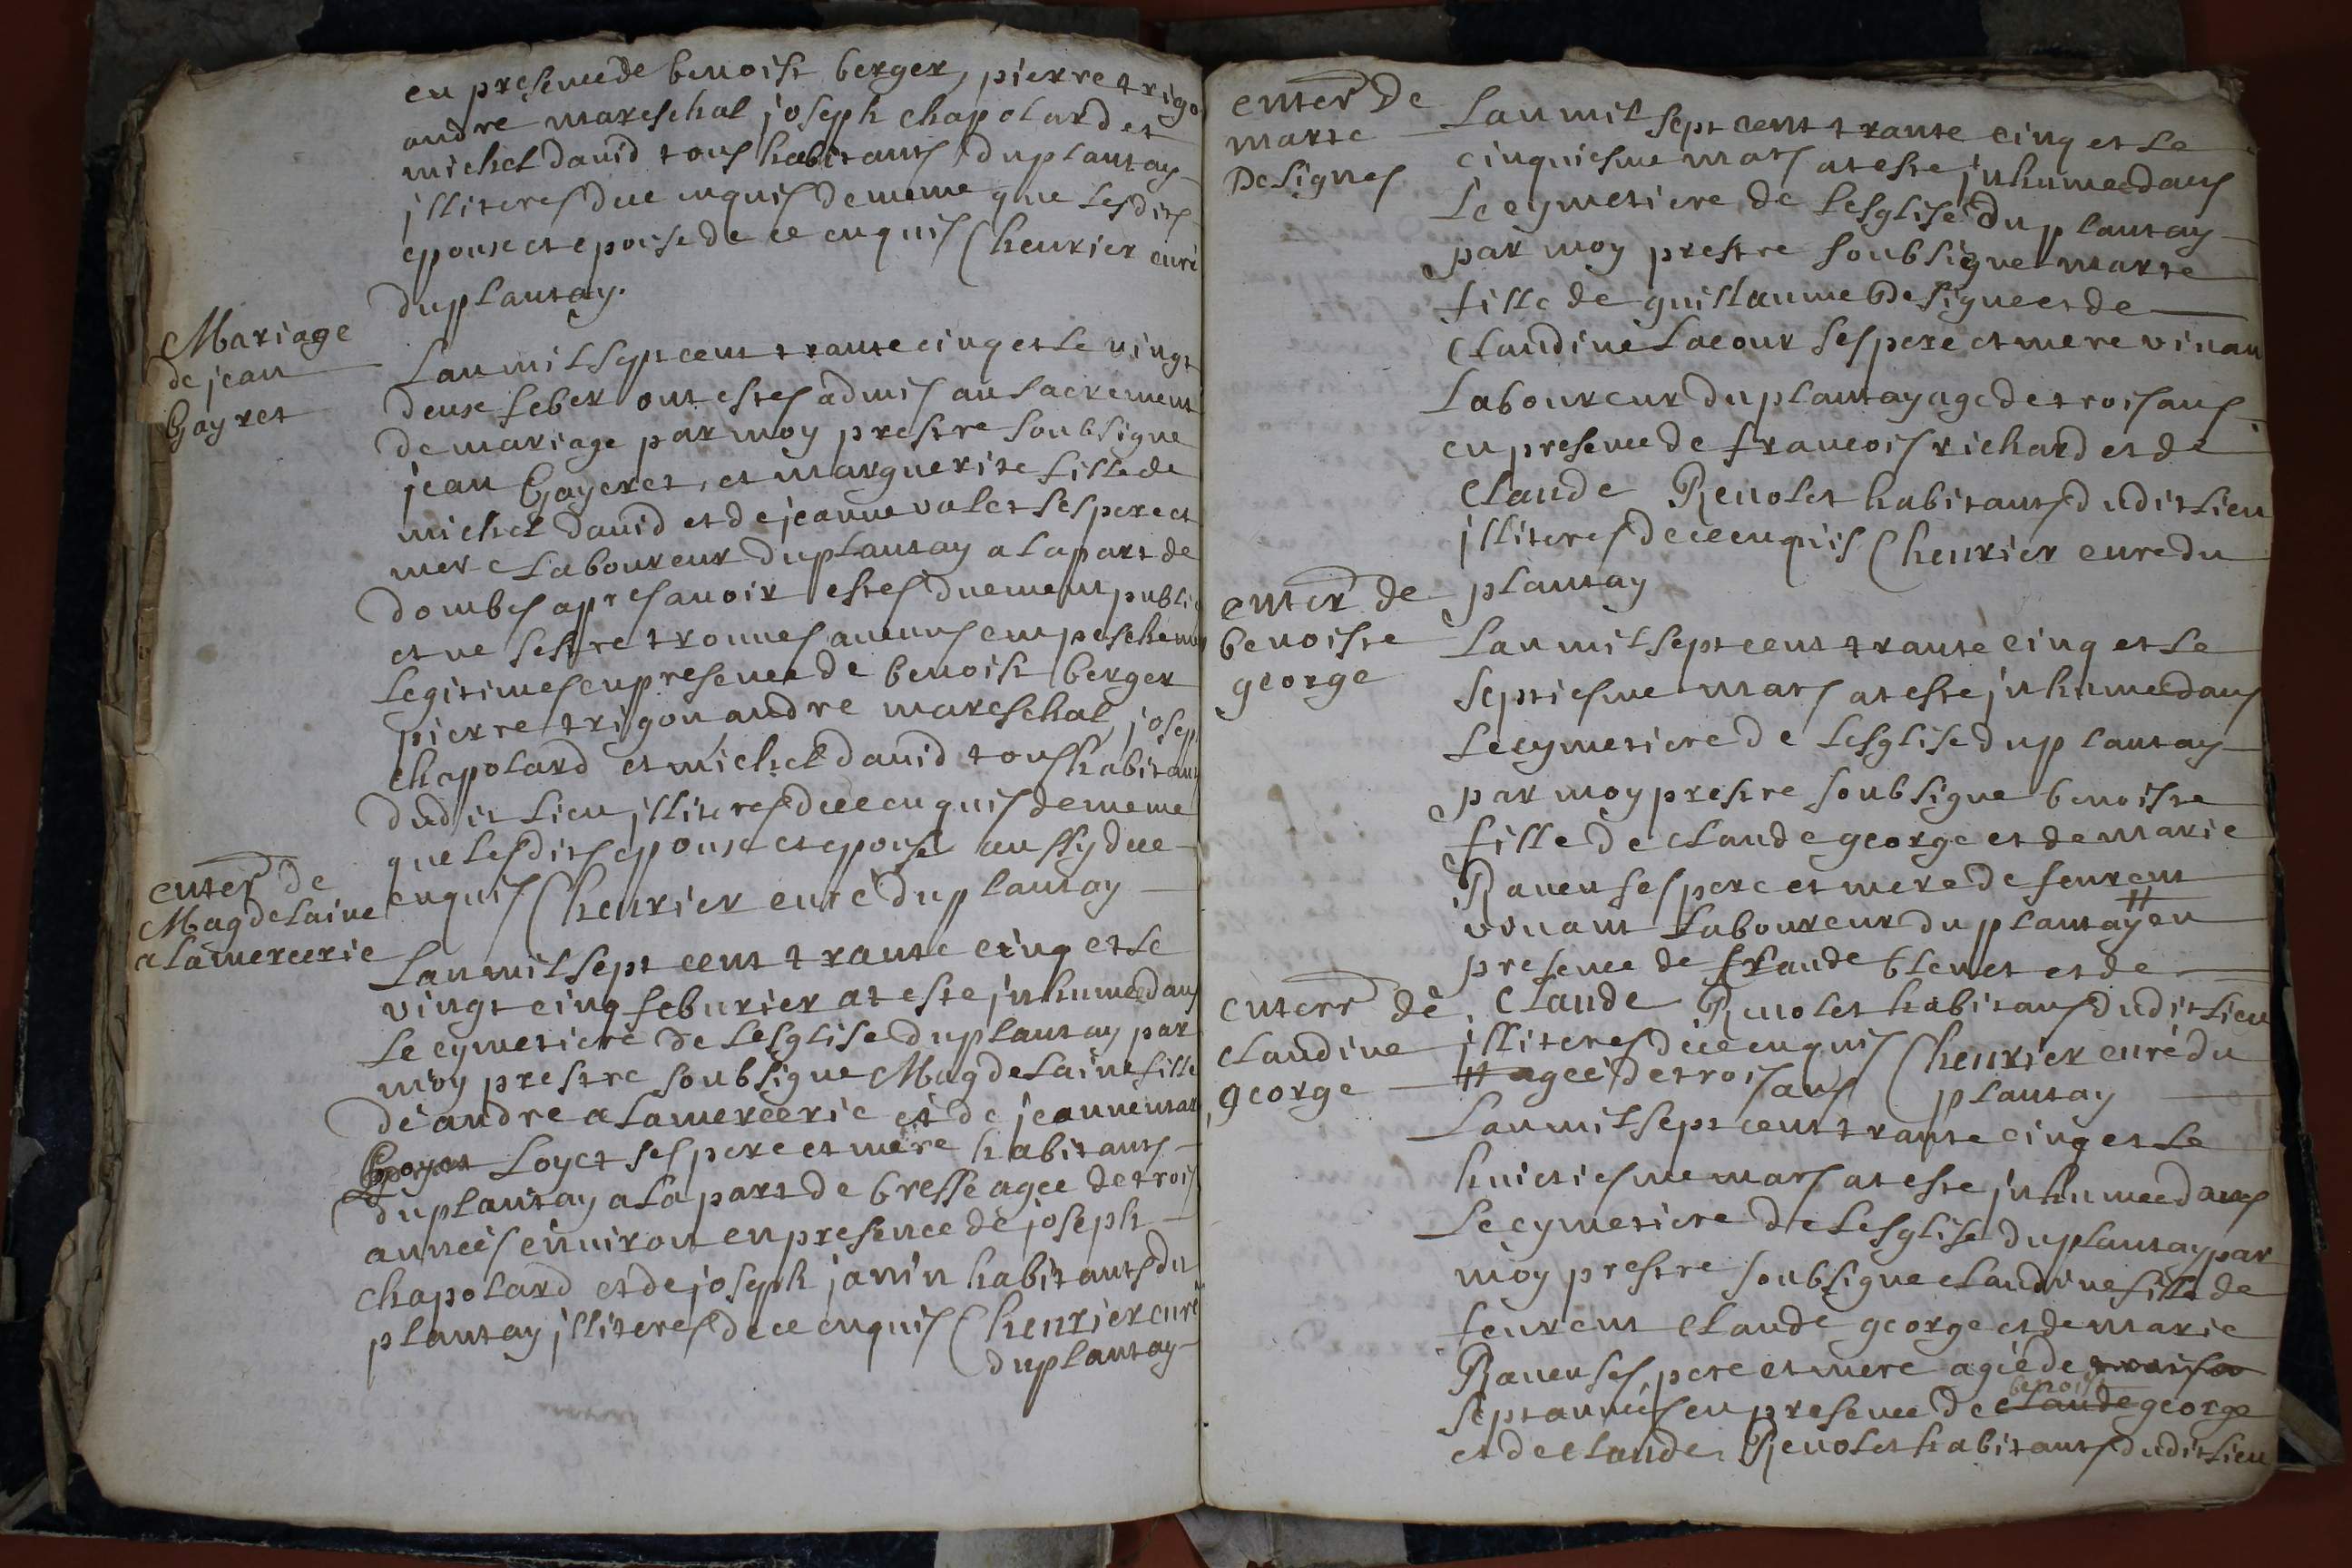 en presence de benoist berger, pierre trigo
andre mareschal joseph chapolard et
michel david tous habitants du plantay
illiteres dece enquis de meme que lesdits
epoux et epouse de ce enquis Chenrier curé
du plantay.
Mariage
de jean
Gayret
Lan mil sept cent trante cinq et le vingt
deux feber ont estes admis au sacrement
de mariage par moy prestre soubsigne
jean Gayeret, et marguerite fille de
michel david et de jeanne valet ses pere et
mere laboureur du plantay a la part de
dombes apres avoir estes duement publi
et ne sestre trouves aucuns empeschem
legitimes en presence de benoist berger
pierre trigon andre mareschal, josep
chapolard et michel david tous habitans
dudit lieu illiteres dece enquis de meme
que lesdits epoux et epouse aussy dece
enquis Chenrier curé du plantay
enter de
Magdelaine
alamercerie
Lan mil sept cent trante cinq et le
vingt cinq feburier at este inhumee dans
le cymetiere de lesglise du plantay par
moy prestre soubsigne Magdelaine fille
de andre alamercerie et de jeanne
Loyet ses pere et mere habitants
du plantay a la part de bresse agee de trois
années environ en presence de joseph
chapolard et de joseph janin habitants du
plantay illiteres de ce enquis Chenrier curé
du plantay
enter de
marte
De signes
Lan mil sept cent trante cinq et le
cinquiesme mars at este inhumee dans
le cymetiere de lesglise du plantay
par moy prestre soubsigne marte
fille de guillaume De signe et de
Claudine Lacour ses pere et mere vivan
laboureur du plantay age de trois ans
en presence de francois richard et de
Claude Revolet habitants dudit lieu
illiteres de ce enquis Chenrier cure du
plantay
enter de
benoiste
george
Lan mil sept cent trante cinq et le
septiesme mars at este inhumee dans
le cymetiere de lesglise du plantay
par moy prestre soubsigne benoiste
fille de claude george et de marie
Raveu ses pere et mere defeurent
vivant laboureur du plantay # en
presence de Claude blenet et de
Claude Revolet habitans dudit lieu
illiteres dece enquis Chenrier curé du
# ageé de trois ans plantay
enterr de
claudine
george
Lan mil sept cent trante cinq et le
huictiesme mars at este inhumee dans
le cymetiere de lesglise du plantay par
moy prestre soubsigne claudine fille de
feurent Claude george et de marie
Raveu ses pere et mere ageé de
benoist
sept années en presence de claude george
et de claude Revolet habitants dudit lieu